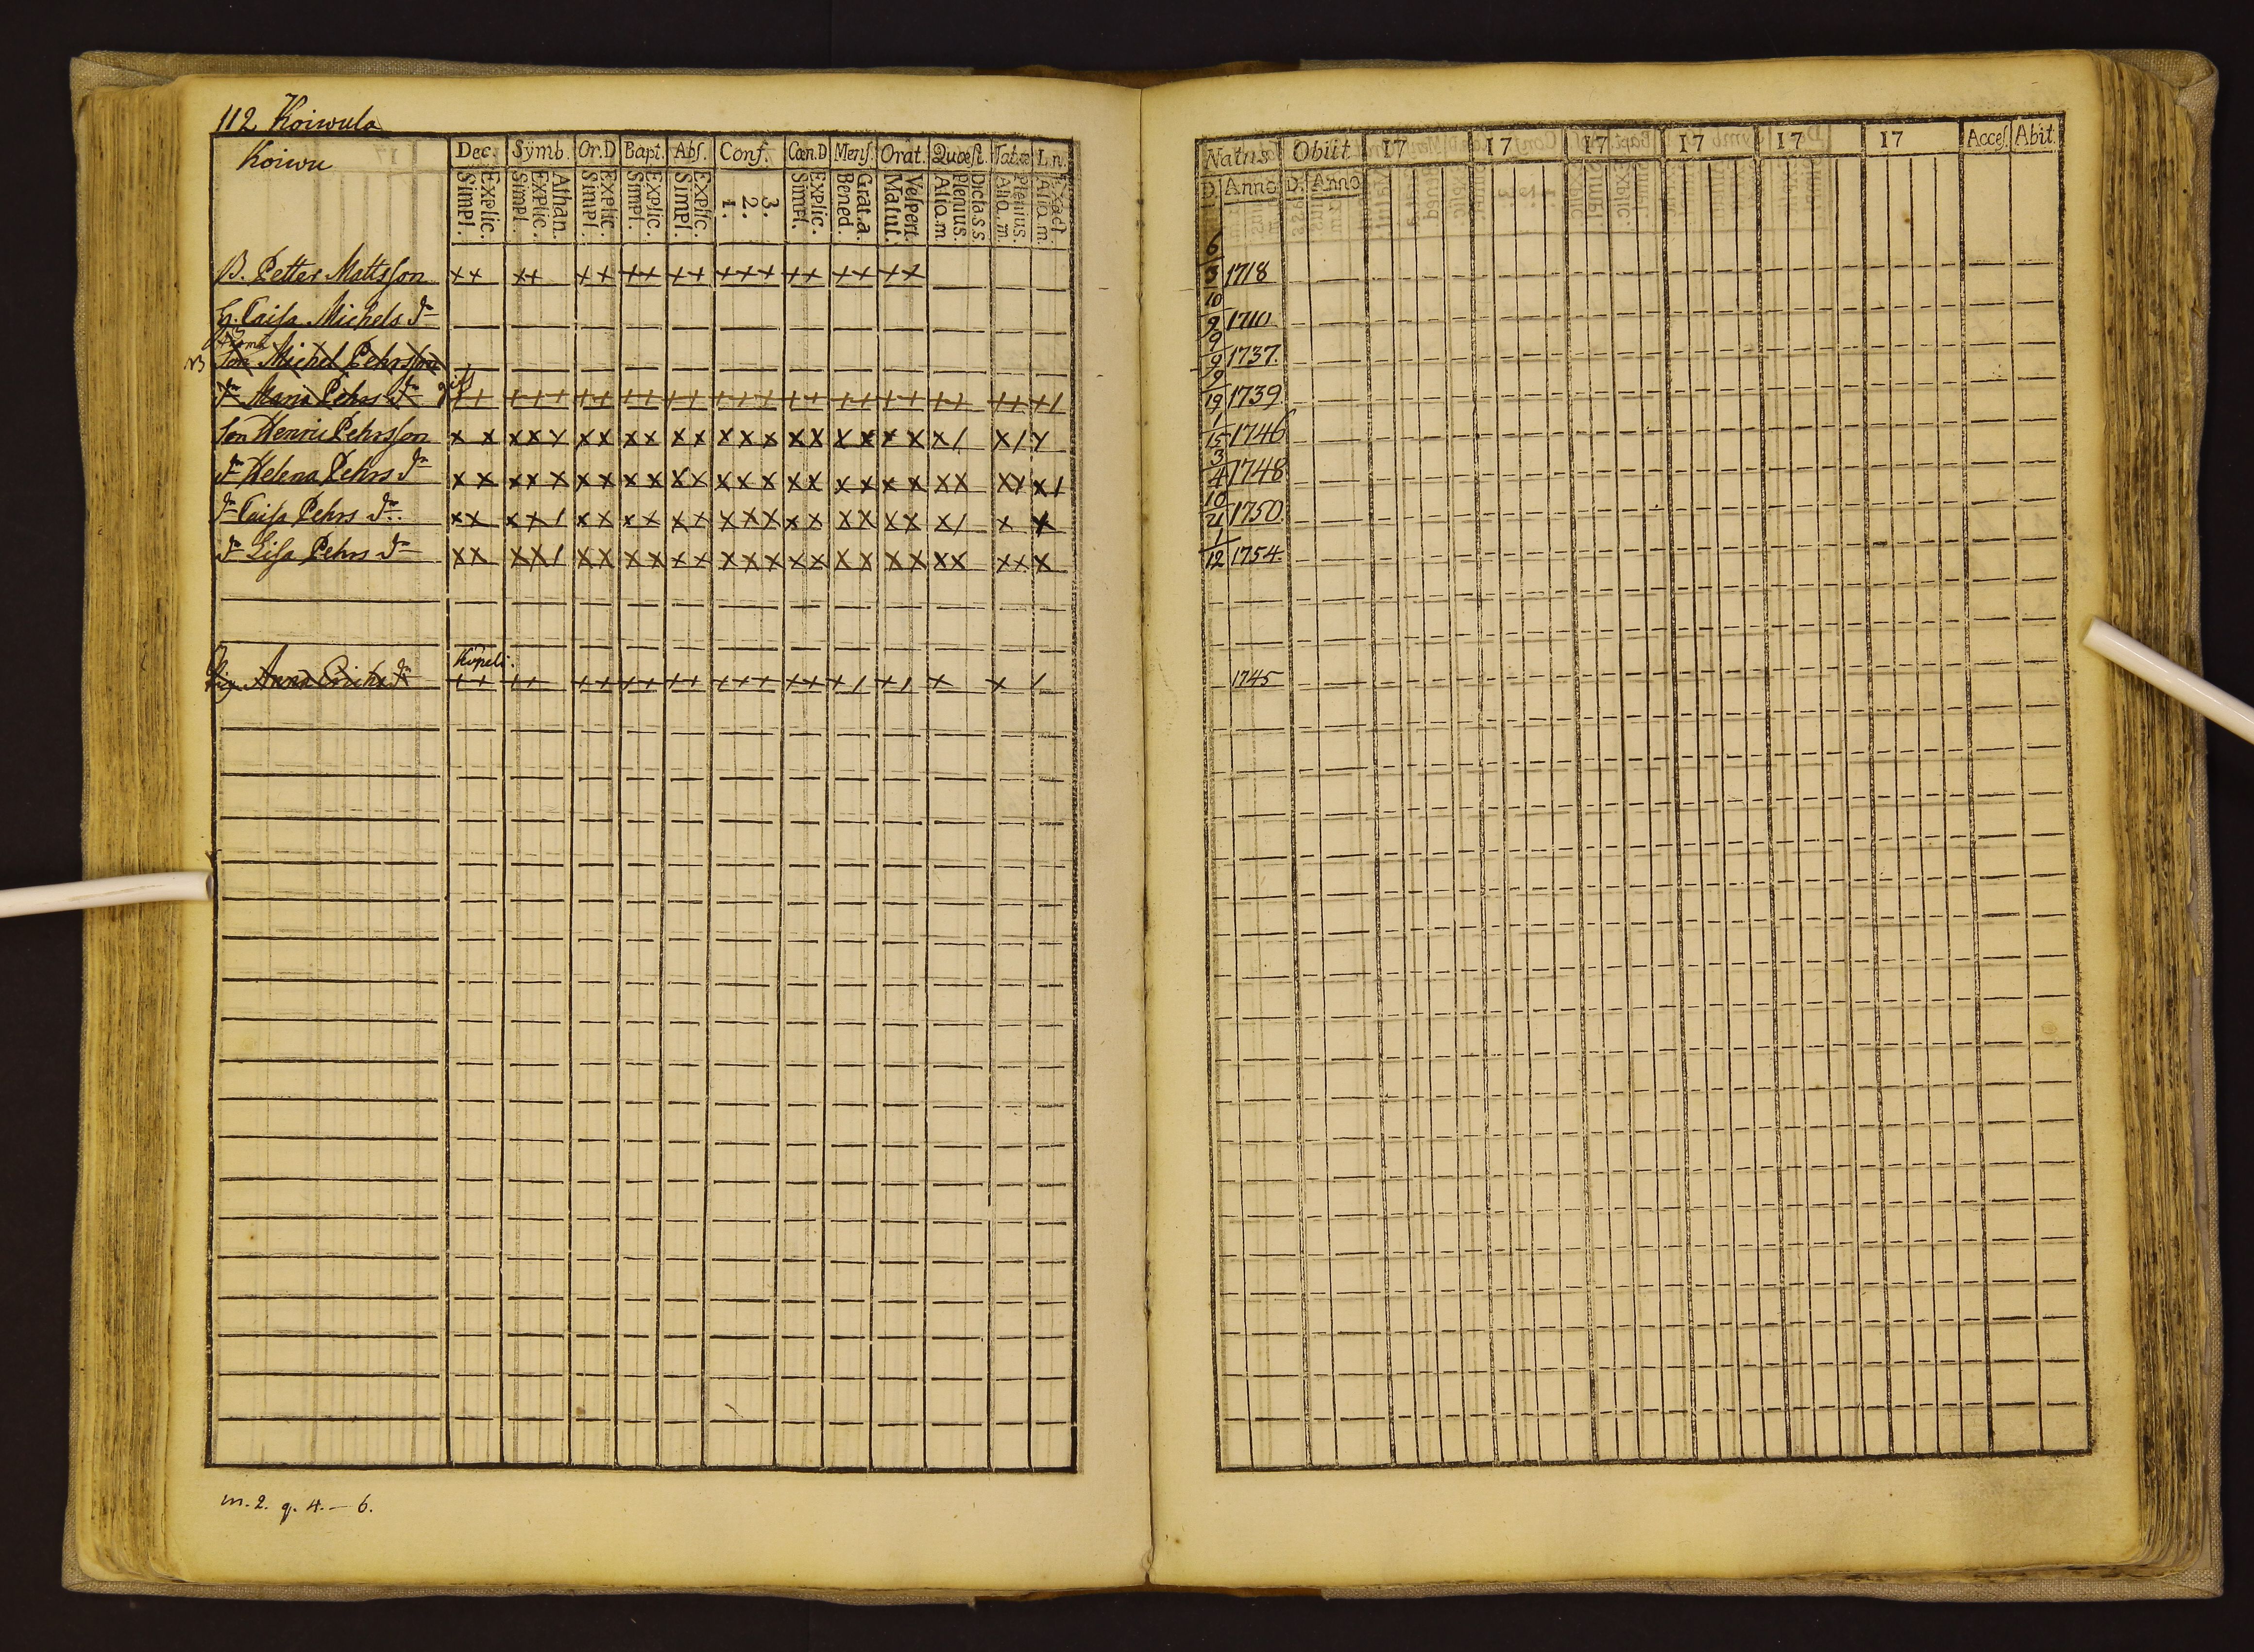 112 Koiwula
Koiwu
Dec. Symb. Or.D Bapt. Abs. Conf. Cœn.D Mens. Orat. Quæst. Tab.œ L. n.
Simpl. Explic. Simpl. Explic. Athan. Simpl. Explic. Simpl. Explic. Simpl. Explic. 1. 2. 3. Simpl. Explic. Bened. Grat.a. Matut. Vespert. Alia.m Plenius. Dicta.s.s. Alia.m. Plenius. Alia.m. Exact.
B. Petter Mattsson ++ ++ ++ ++ ++ +++ ++ ++ ++
H. Caisa Michels dr
NB
Son Michel Pehrsson
dr Maria Pehrs dr gift ++ +++ ++ ++ ++ +++ ++ ++ ++ ++ ++ +/
Son Henric Pehrsson x x xxx xx xx xx xxx xx xx xx x/ x/ x
dr Helena Pehrs dr x x xxx xx xx xx xxx xx xx xx xx xx x/
dr Caisa Pehrs dr. xx xx/ xx xx xx xxx xx xx xx x/ x x
dr Lisa Pehrs dr xx xx/ xx xx xx xxx xx xx xx xx xx x
Köpeli.
Pig. Anna dr ++ ++ ++ ++ ++ +++ ++ +/ +/ + + /
m. 2. q. 4. — 6.
Natus Obiit 17 17 17 17 17 17 Acces. Abit
D. Anno D. Anno
6/3 1718
10/9 1710
9/9 1737.
9/19 1739
1/15 1746
3/4 1748
10/21 1750.
1/12 1754.
1745